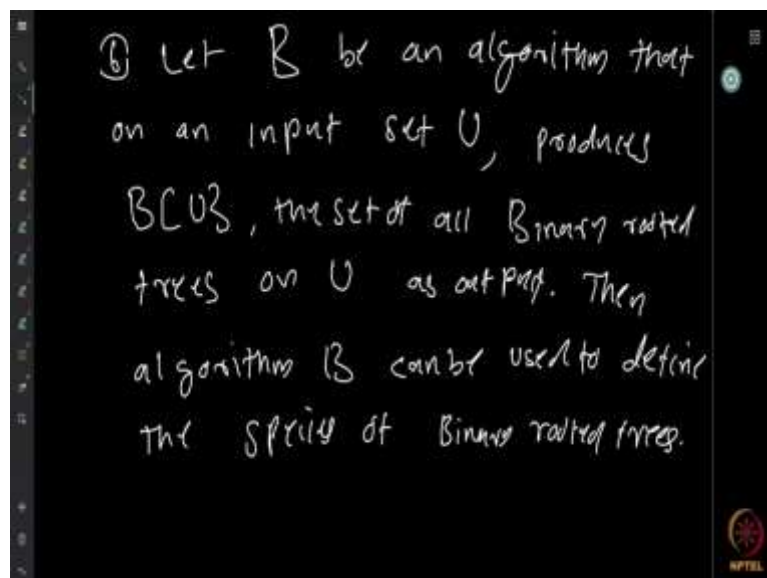 ⑥ Let B be an algorithm that
on an input set U, produces
B[U], the set of all Binary rooted
trees on U as output. Then
algorithm B can be used to define
the species of Binary rooted trees.
NPTEL